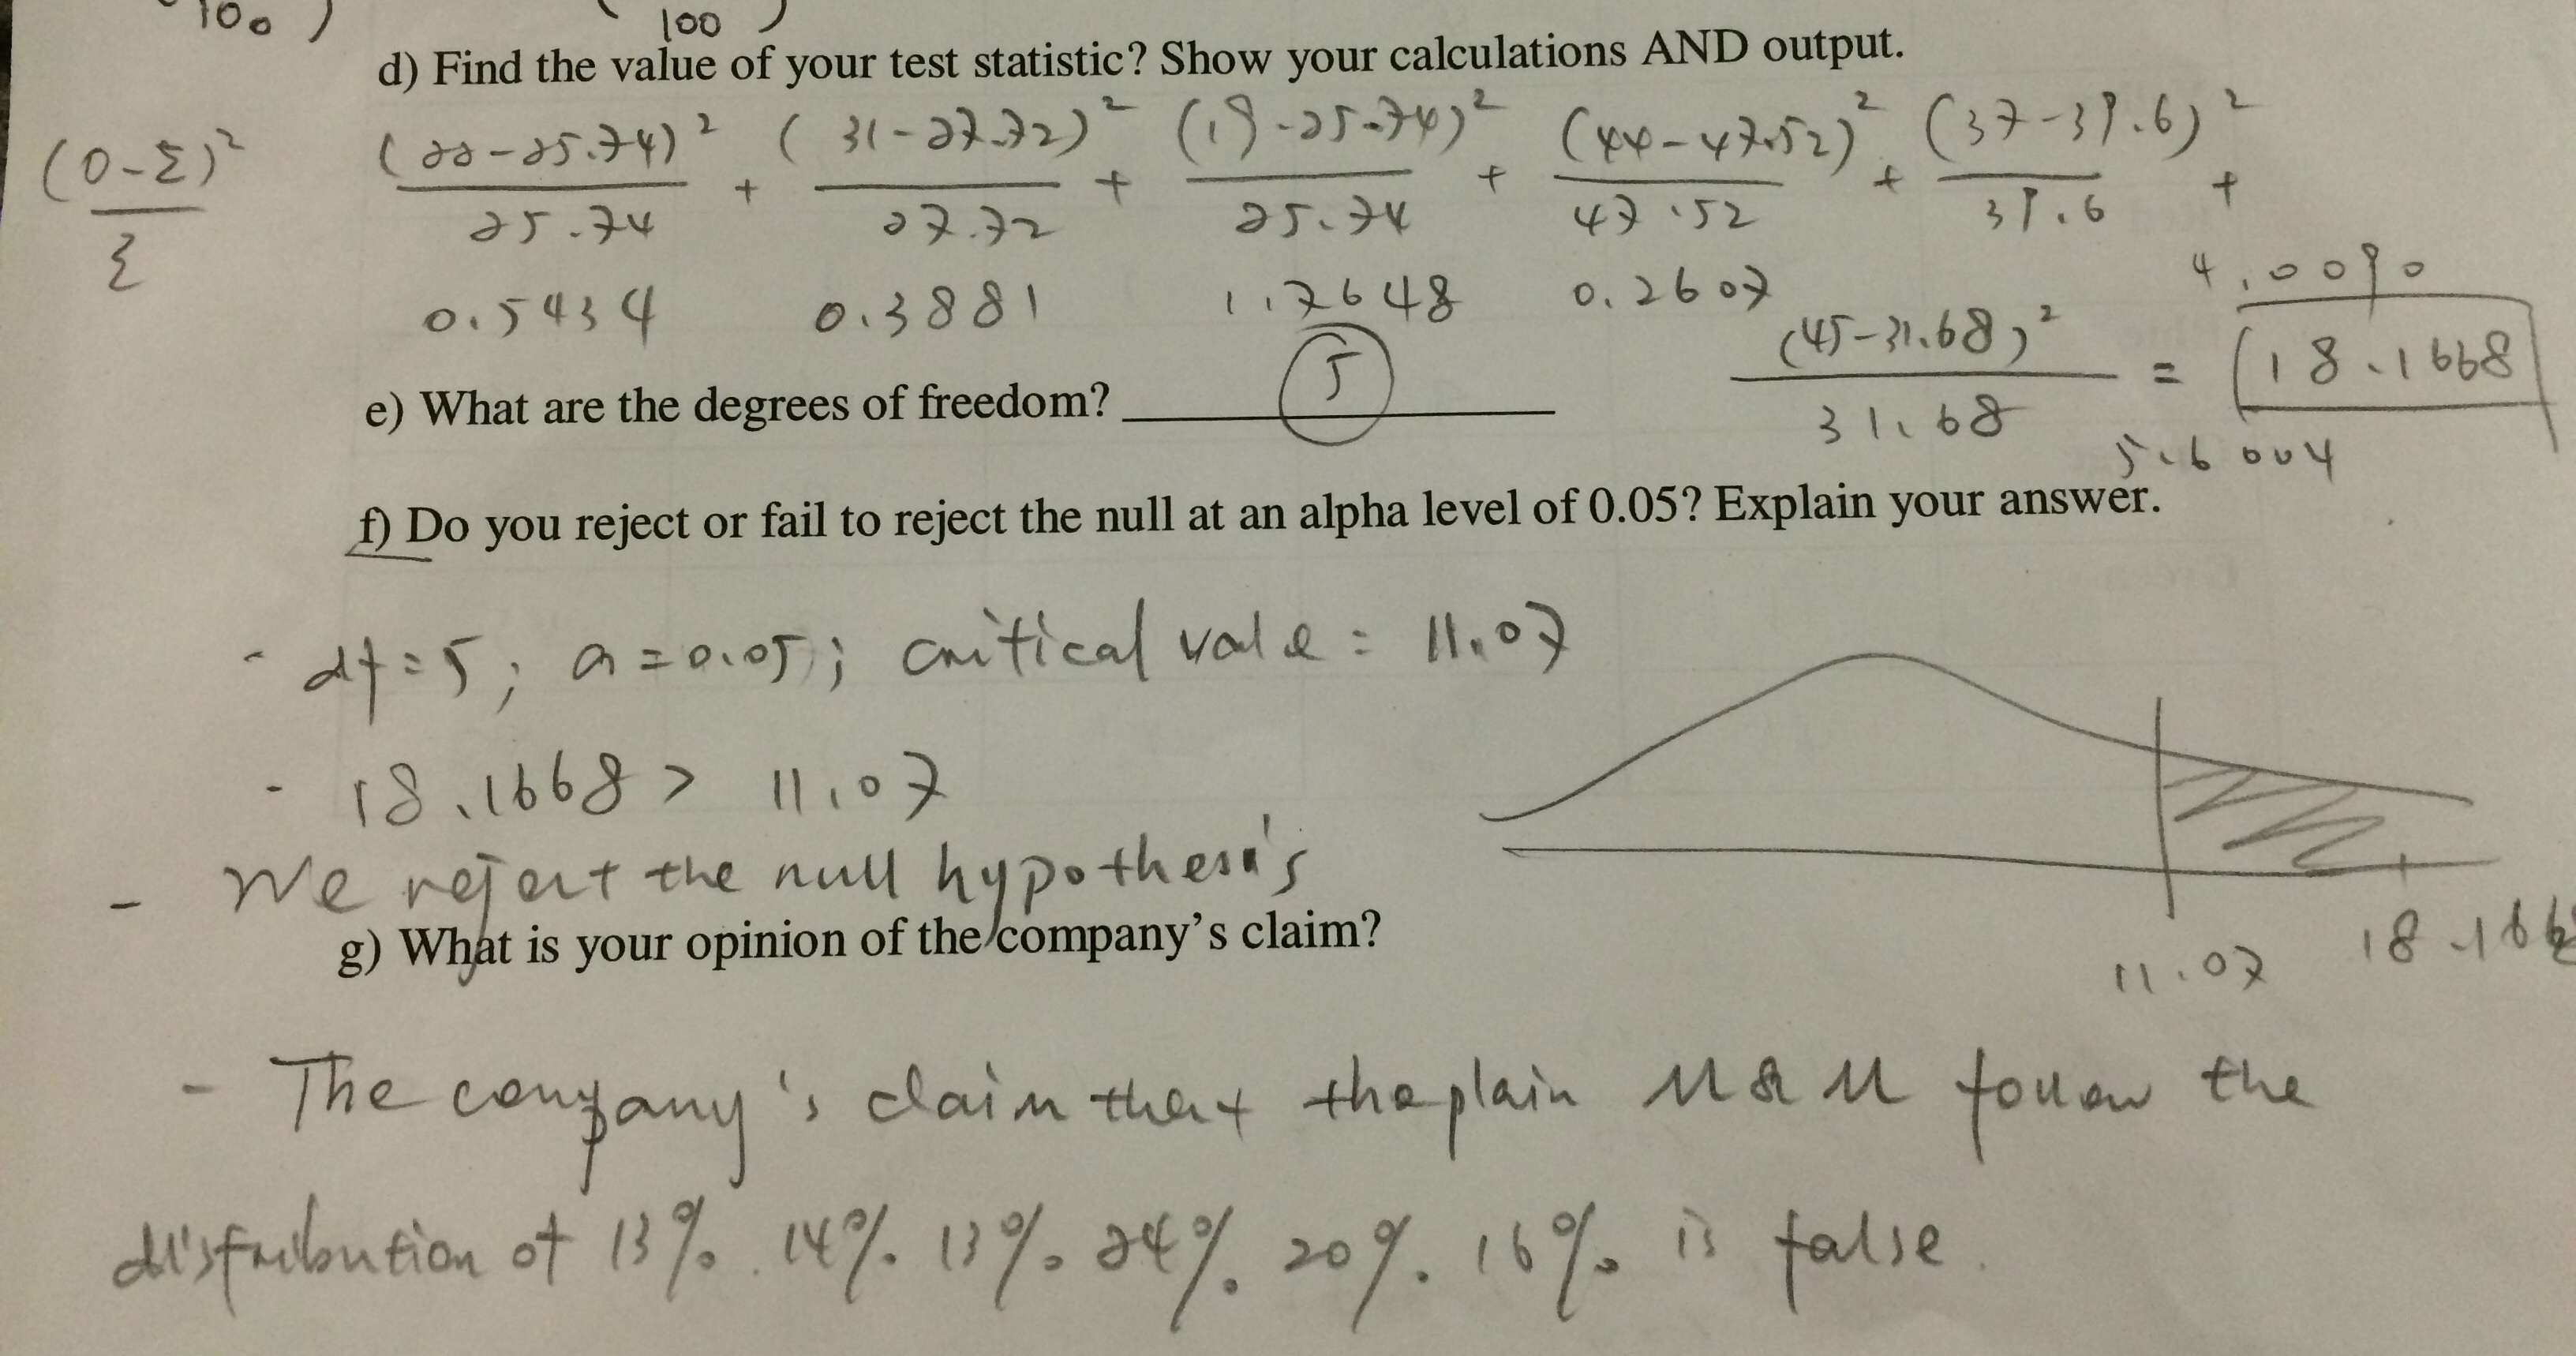 100 )
( 100 )
d) Find the value of your test statistic? Show your calculations AND output.
(O-Σ)² / Σ
(22-25.74)² / 25.74 + (31-27.72)² / 27.72 + (19-25.74)² / 25.74 + (44-47.52)² / 47.52 + (37-39.6)² / 39.6 +
0.5434 0.3881 1.7648 0.2607 4.0090
(45-31.68)² / 31.68 = 18.1668
5.6004
e) What are the degrees of freedom? 5
f) Do you reject or fail to reject the null at an alpha level of 0.05? Explain your answer.
- df=5; a=0.05; critical vale = 11.07
- 18.1668 > 11.07
- We reject the null hypothesis
11.07 18.166
g) What is your opinion of the company's claim?
- The company's claim that the plain M&M follow the
distribution of 13%. 14%. 13%. 24%. 20%. 16%. is false.